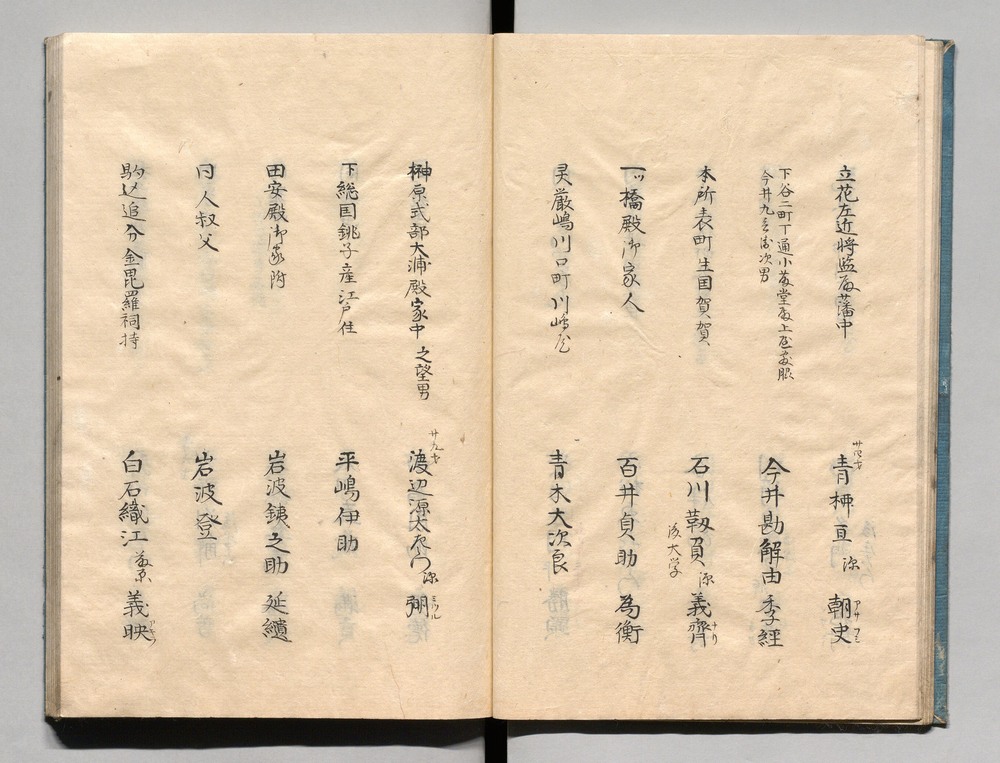 立花左近将監殿藩中
廿四才
青柳亘 源 朝史
アサフミ
下谷二町丁通小 堂 上
今井九 次男
今井勘解由 季経
本所表町生国賀賀
石川靱負 源 義齊
後大学
ナリ
一ツ橋殿御家人
百井貞助 為衡
灵厳嶋川口町川嶋屋
青木大次良
榊原式部大浦殿家中 之望男
廿九才
渡辺源太左衛門 源 弸
ミツル
下総国銚子産江戸住
平嶋伊助
田安殿御家附
岩波銕之助 延繽
同人叔父
岩波登
駒込追分金毘羅祠持
白石織江 藤原 義映